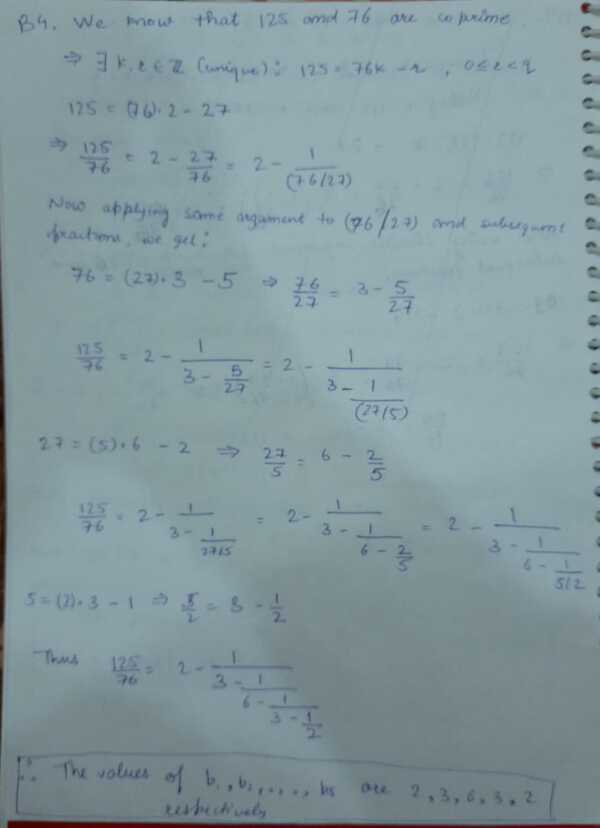 B4. We know that 125 and 76 are coprime
⇒ ∃ k, r ∈ ℤ (unique): 125 = 76k - r , 0 ≤ r < q
125 = (76)·2 - 27
⇒ 125/76 = 2 - 27/76 = 2 - 1/(76/27)
Now applying same argument to (76/27) and subsequent
fractions, we get:
76 = (27)·3 - 5 ⇒ 76/27 = 3 - 5/27
125/76 = 2 - 1/(3 - 5/27) = 2 - 1/(3 - 1/(27/5))
27 = (5)·6 - 2 ⇒ 27/5 = 6 - 2/5
125/76 = 2 - 1/(3 - 1/(27/5)) = 2 - 1/(3 - 1/(6 - 2/5)) = 2 - 1/(3 - 1/(6 - 1/(5/2)))
5 = (2)·3 - 1 ⇒ 5/2 = 3 - 1/2
Thus 125/76 = 2 - 1/(3 - 1/(6 - 1/(3 - 1/2)))
∴ The values of b1, b2, ...., b5 are 2, 3, 6, 3, 2
respectively